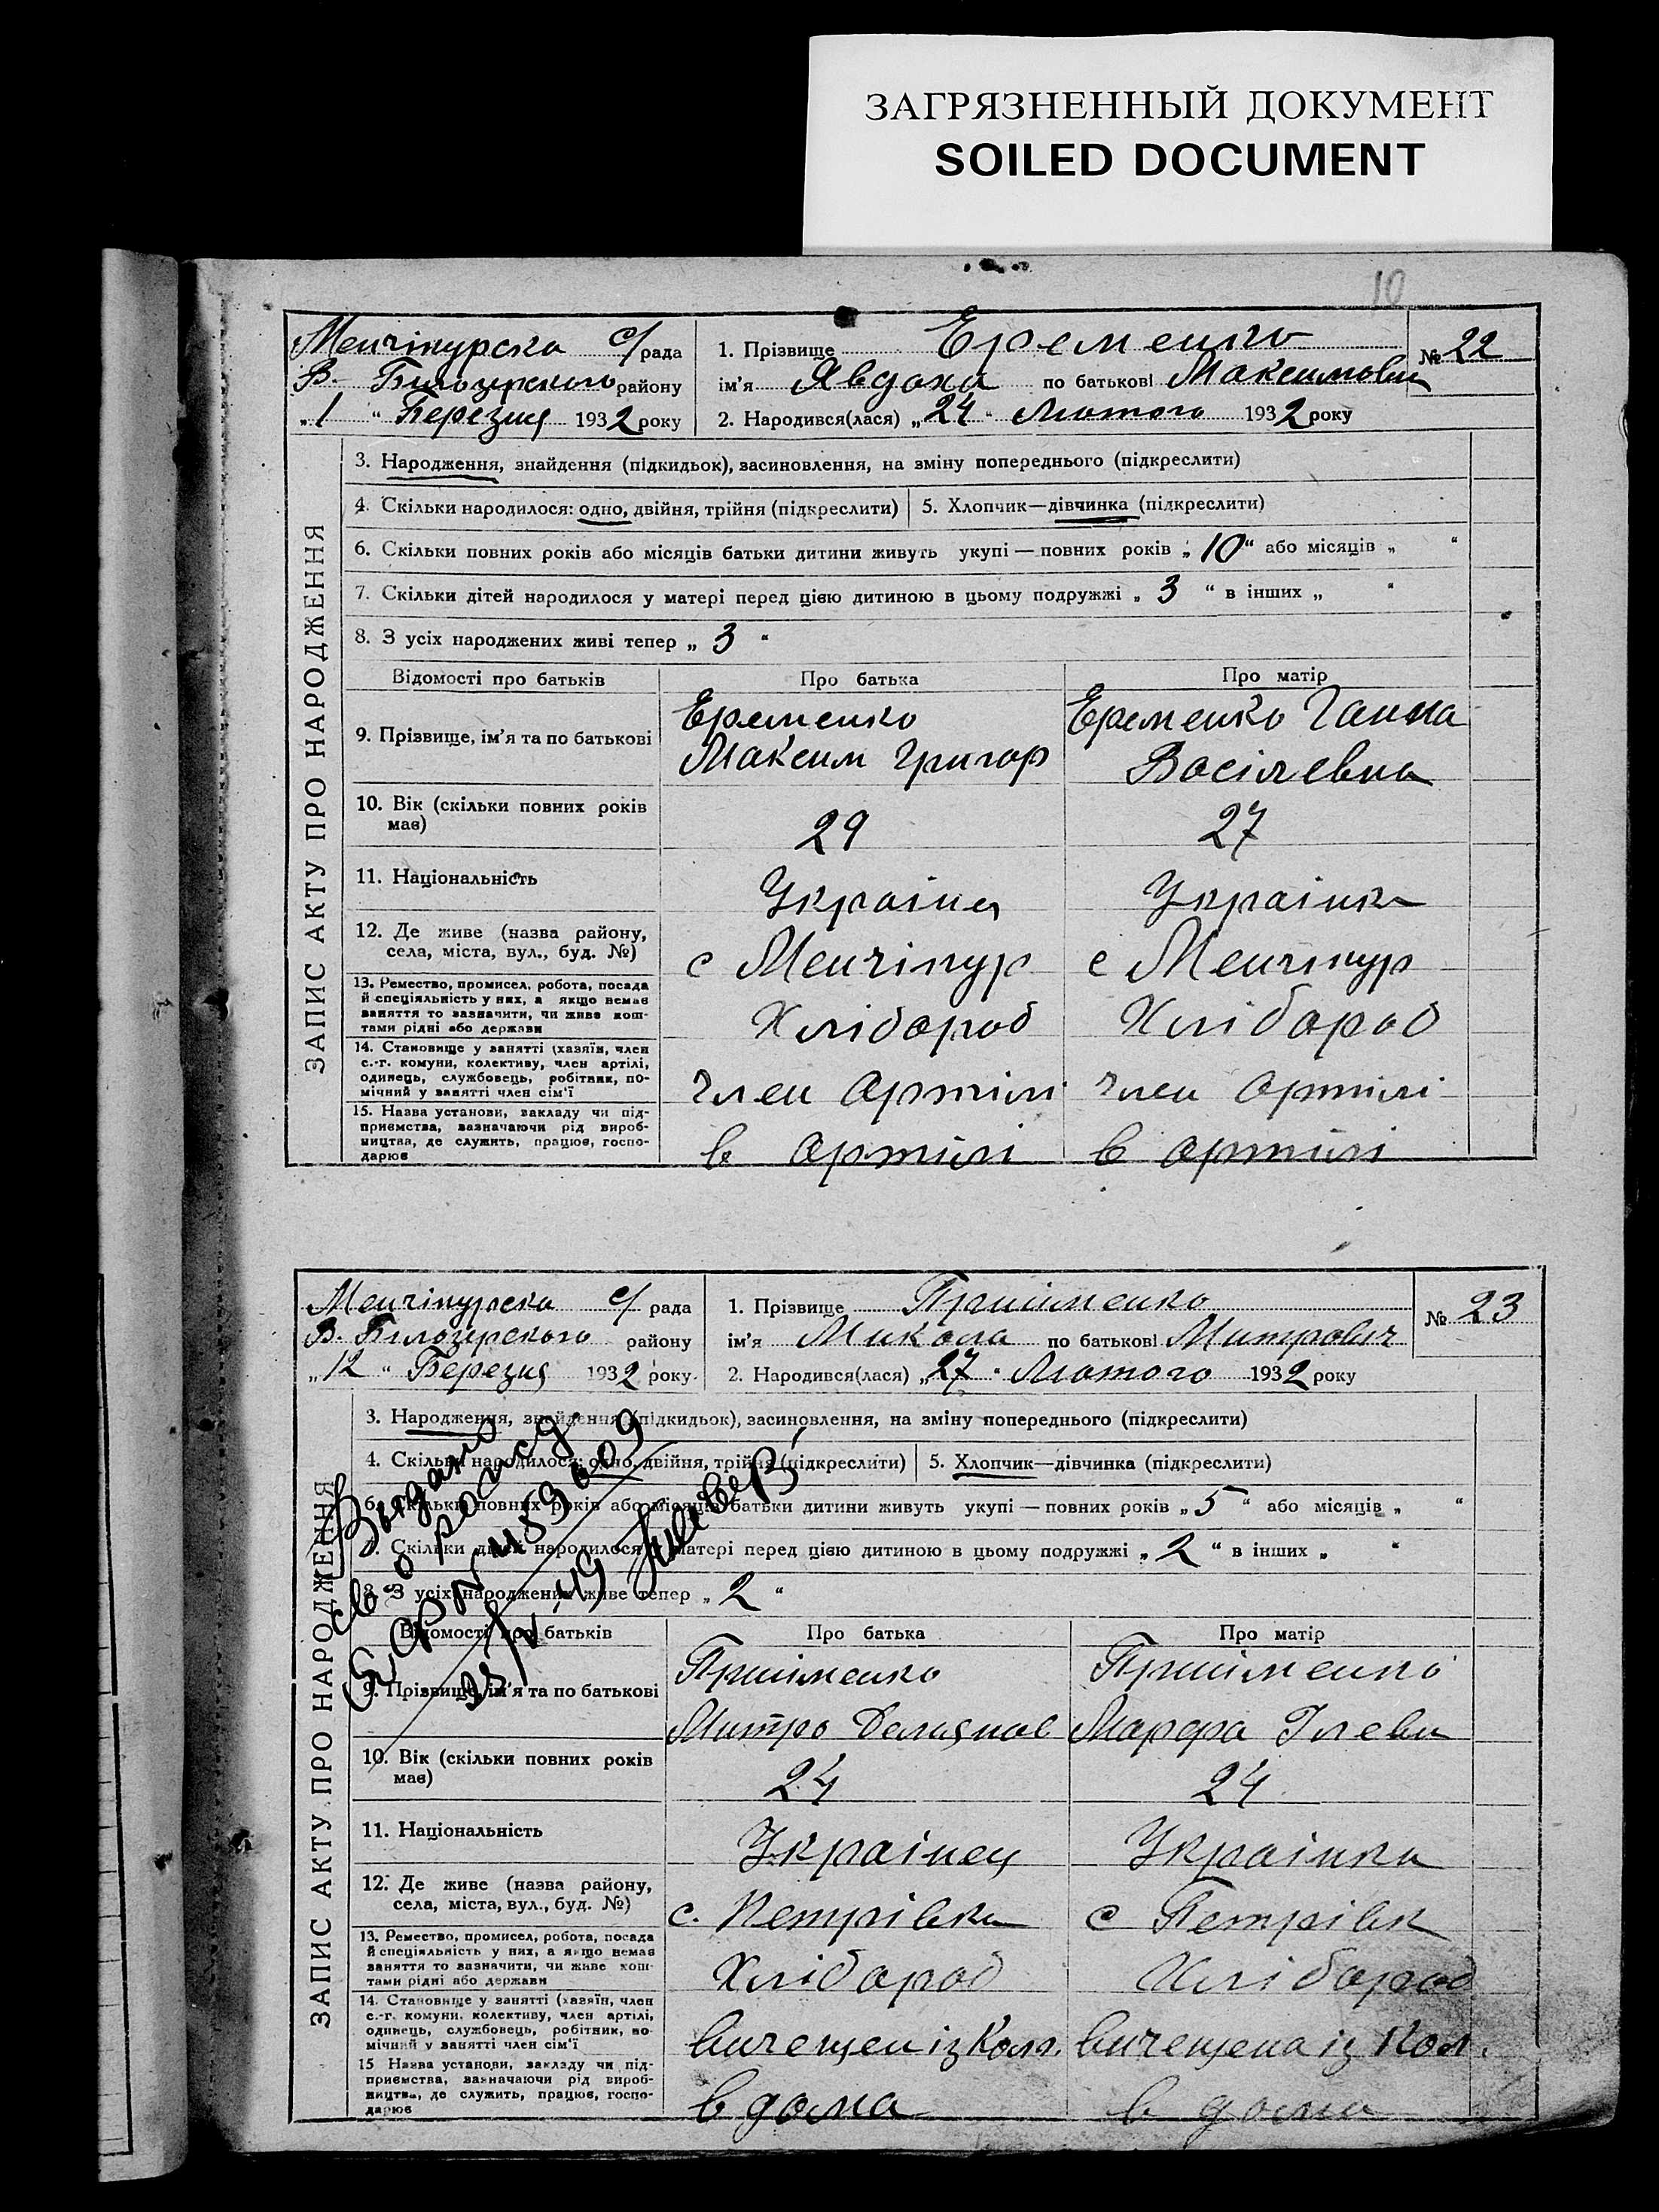 ЗАГРЯЗНЕННЫЙ ДОКУМЕНТ
SOILED DOCUMENT
10
ЗАПИС АКТУ ПРО НАРОДЖЕННЯ
Менчікурска с/рада
В. Білозирського району
„1“ Березня 1932 року
1. Прізвище Еременко
№ 22
ім'я Явдоха по батькові Максимовна
2. Народився(лася) „24“ Лютого 1932 року
3. Народження, знайдення (підкидьок), засиновлення, на зміну попереднього (підкреслити)
4. Скільки народилося: одно, двійня, трійня (підкреслити) 5. Хлопчик—дівчинка (підкреслити)
6. Скільки повних років або місяців батьки дитини живуть укупі — повних років „10“ або місяців „ “
7. Скільки дітей народилося у матері перед цією дитиною в цьому подружжі „3“ в інших „ “
8. З усіх народжених живі тепер „3“
Відомості про батьків Про батька Про матір
9. Прізвище, ім'я та по батькові
Еременко Максим Григор
Еременко Ганна Васілевна
10. Вік (скільки повних років має) 29 27
11. Національність Україна Українка
12. Де живе (назва району, села, міста, вул., буд. №)
с Менчікур с Менчикур
13. Ремество, промисел, робота, посада й спеціяльність у них, а якщо немає заняття то зазначити, чи живе коштами рідні або держави
Хлібороб Хлібороб
14. Становище у занятті (хазяїн, член с.-г. комуни, колективу, член артілі, одинець, службовець, робітник, помічний у занятті член сім'ї
член артілі член артілі
15. Назва установи, закладу чи підприємства, зазначаючи рід виробництва, де служить, працює, господарює
в артілі в артілі
ЗАПИС АКТУ ПРО НАРОДЖЕННЯ
Менчікурска с/рада
В. Білозирського району
„12“ Березня 1932 року
1. Прізвище Прийменко
№ 23
ім'я Микола по батькові Митрович
2. Народився(лася) „27“ Лютого 1932 року
3. Народження, знайдення (підкидьок), засиновлення, на зміну попереднього (підкреслити)
4. Скільки народилося: одно, двійня, трійня (підкреслити) 5. Хлопчик—дівчинка (підкреслити)
6. Скільки повних років або місяців батьки дитини живуть укупі — повних років „5“ або місяців „ “
7. Скільки дітей народилося у матері перед цією дитиною в цьому подружжі „2“ в інших „ “
8. З усіх народжених живе тепер „2“
Выдано
св о рожд
Відомості про батьків Про батька Про матір
9. Прізвище, ім'я та по батькові
Прийменко Митро
Прийменко Марфа
10. Вік (скільки повних років має) 24 24
11. Національність Українец Українка
12. Де живе (назва району, села, міста, вул., буд. №)
с. Петрівка с Петрівк
13. Ремество, промисел, робота, посада й спеціяльність у них, а якщо немає заняття то зазначити, чи живе коштами рідні або держави
Хлібороб Хлібороб
14. Становище у занятті (хазяїн, член с.-г. комуни, колективу, член артілі, одинець, службовець, робітник, помічний у занятті член сім'ї
вичещен із Кол. вичещена із Кол.
15 Назва установи, закладу чи підприємства, зазначаючи рід виробництва, де служить, працює, господарює
в дома в дома